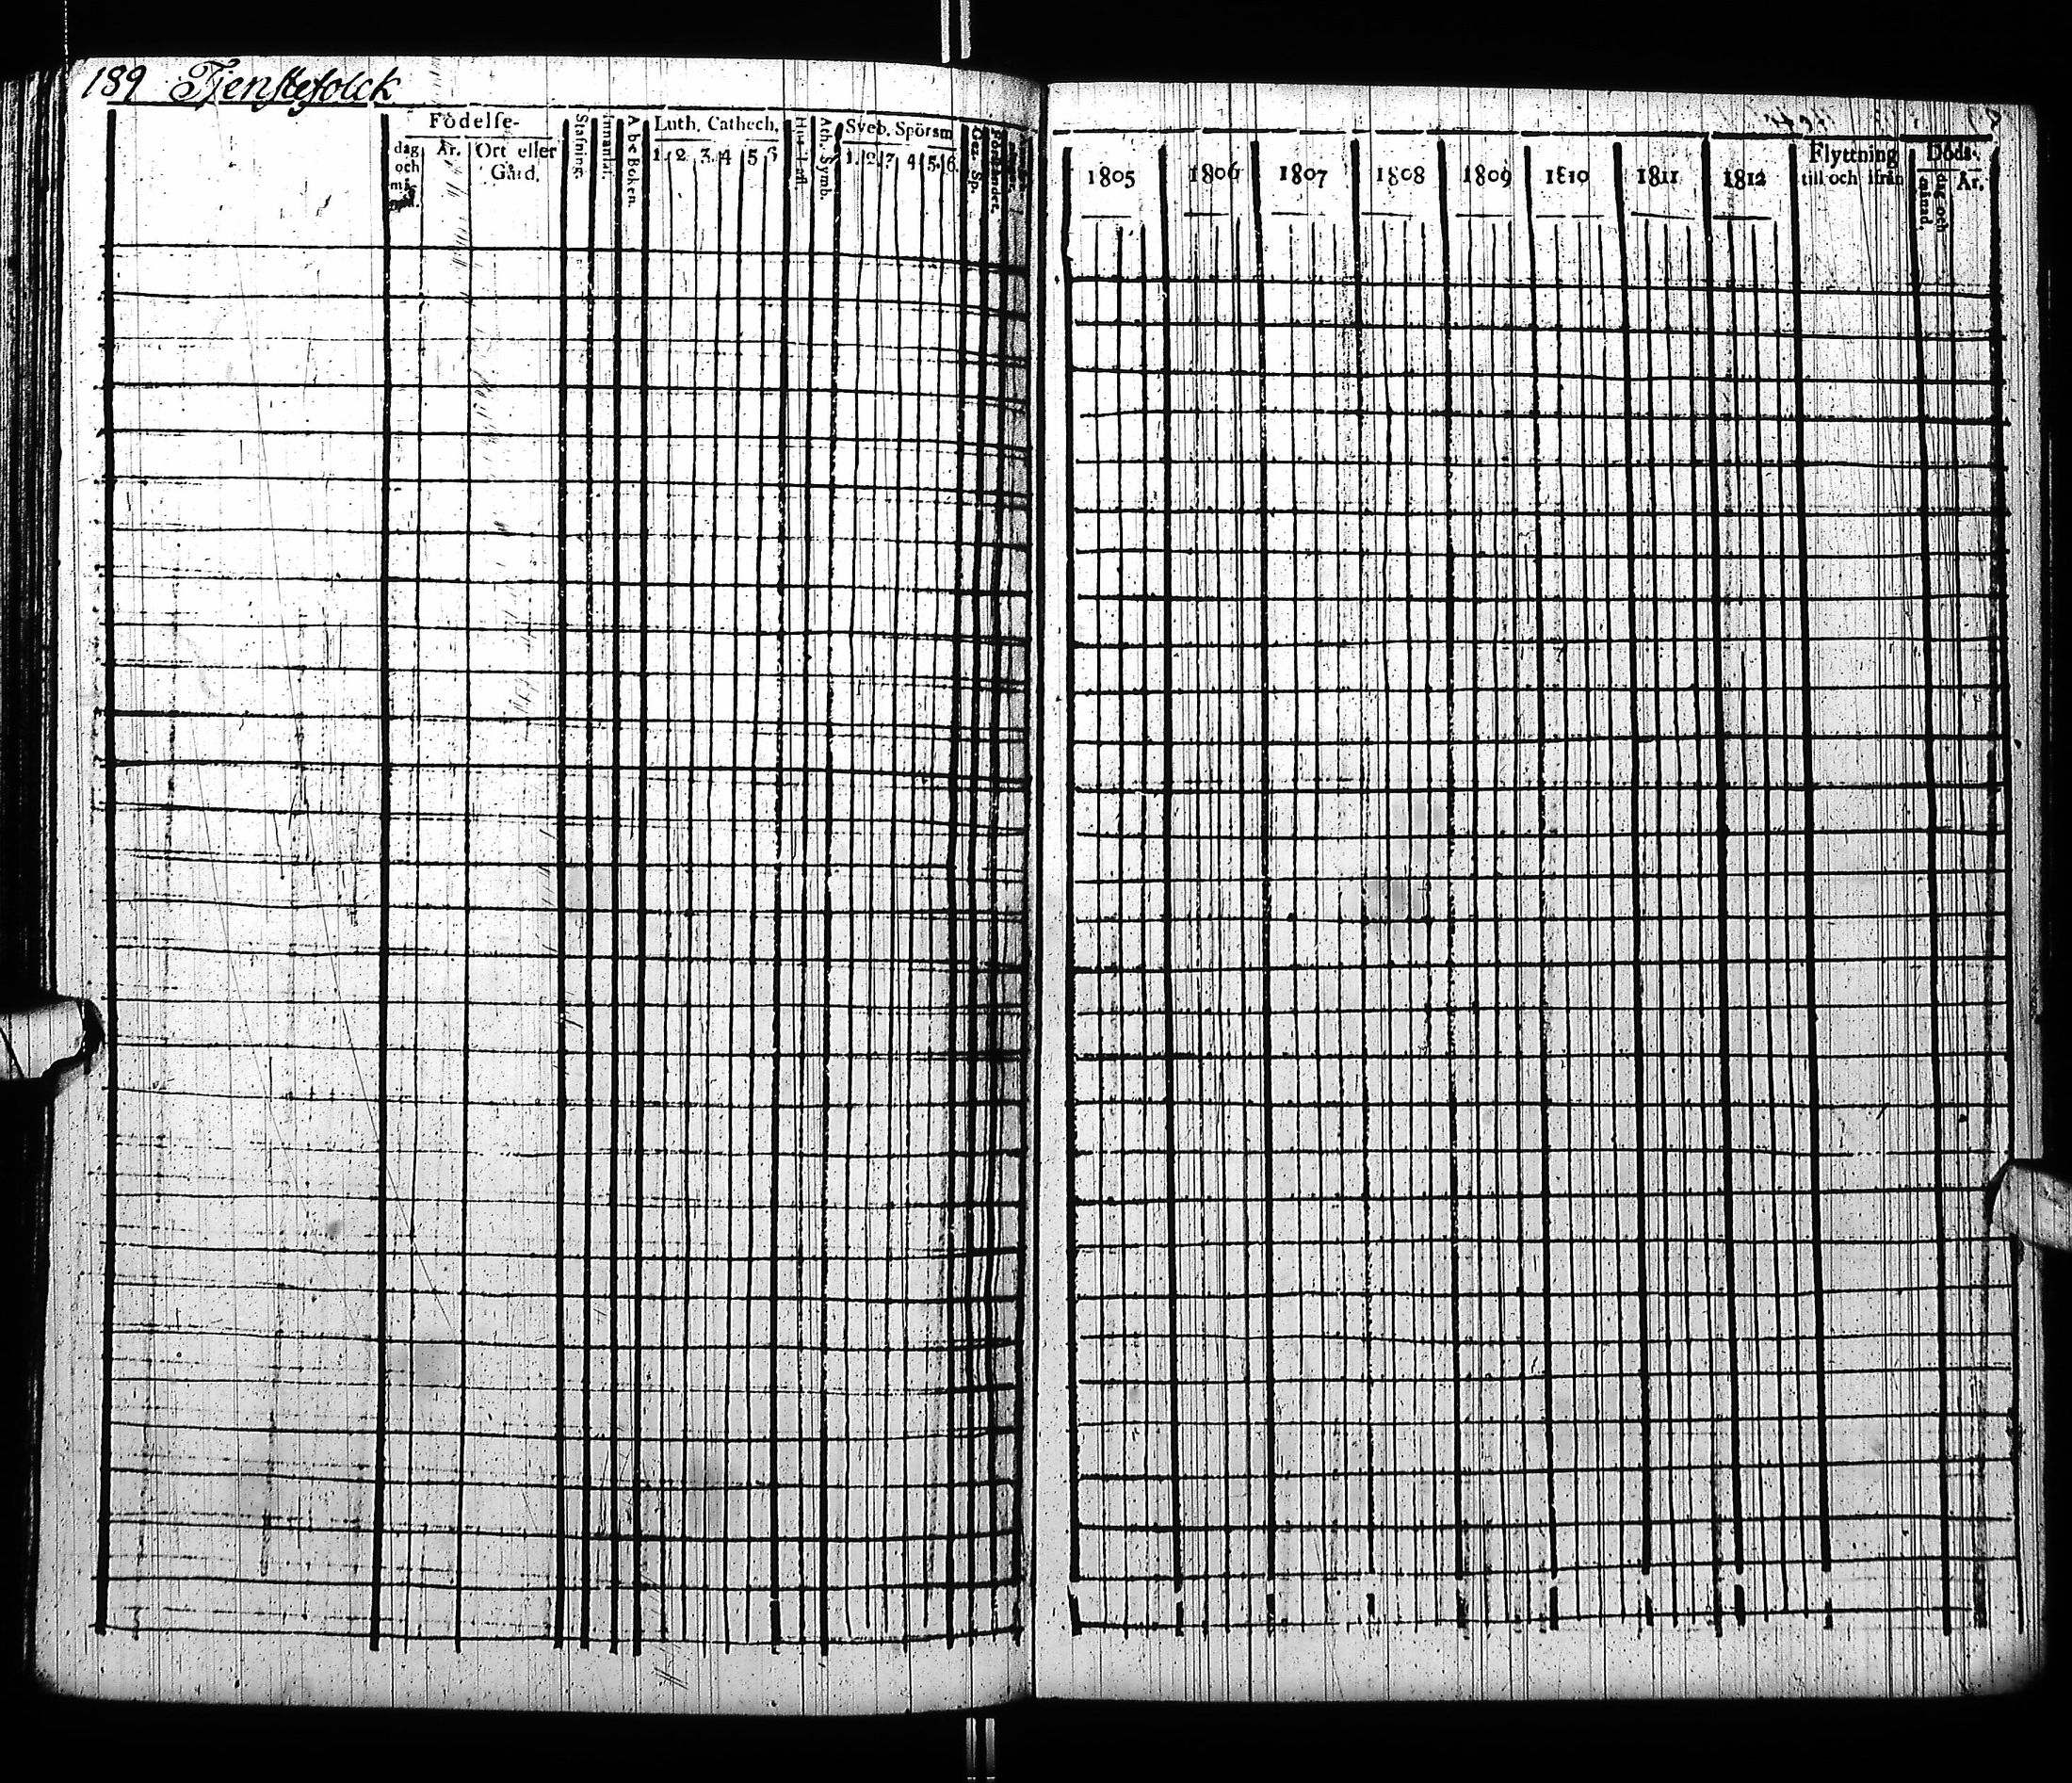 189 Tjenstefolck
Födelse-
dag och
År.
Ort eller Gård.
Stafning.
Innanläs.
A b c Boken.
Luth. Cathech.
1. 2. 3. 4. 5. 6.
Ath. Symb.
Sveb. Spörsm.
1. 2. 3. 4. 5. 6.
1805 1806 1807 1808 1809 1810 1811 1812
Flyttning
till och ifrån
Döds-
dag och månad.
År.